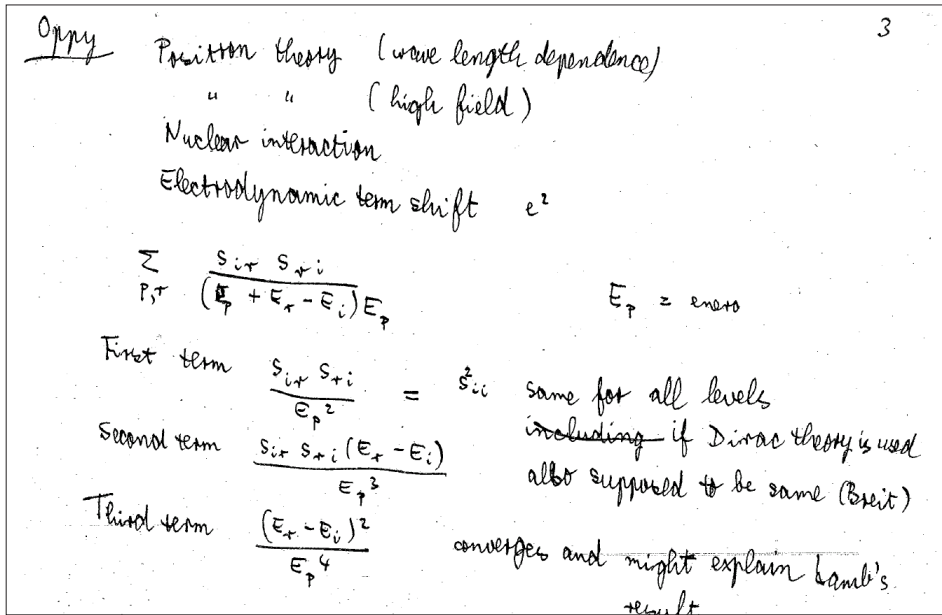 3
Oppy Positron theory (wave length dependence)
" " (high field)
Nuclear interaction
Electrodynamic term shift e²
Σ p,r S_ir S_ri / (E_p + E_r - E_i) E_p E_p = energ
First term S_ir S_ri / E_p² = S²_ii same for all levels
including if Dirac theory is used
Second term S_ir S_ri (E_r - E_i) / E_p³ also supposed to be same (Breit)
Third term (E_r - E_i)² / E_p⁴ converges and might explain Lamb's
result